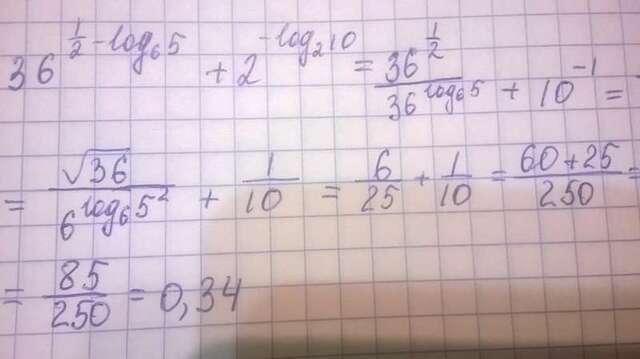 36^{\frac{1}{2}-\log_6 5} + 2^{-\log_2 10} = \frac{36^{\frac{1}{2}}}{36^{\log_6 5}} + 10^{-1} =
= \frac{\sqrt{36}}{6^{\log_6 5^2}} + \frac{1}{10} = \frac{6}{25} + \frac{1}{10} = \frac{60+25}{250} =
= \frac{85}{250} = 0,34